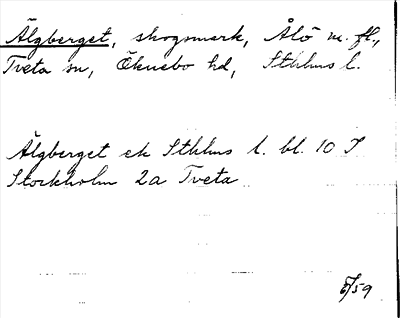 Älgberget, skogsmark, Ålö m. fl.,
Tveta sn, Öknebo hd, Sthlms l.
Älgberget ek Sthlms l. bl. 10 I
Stockholm 2a Tveta
/59